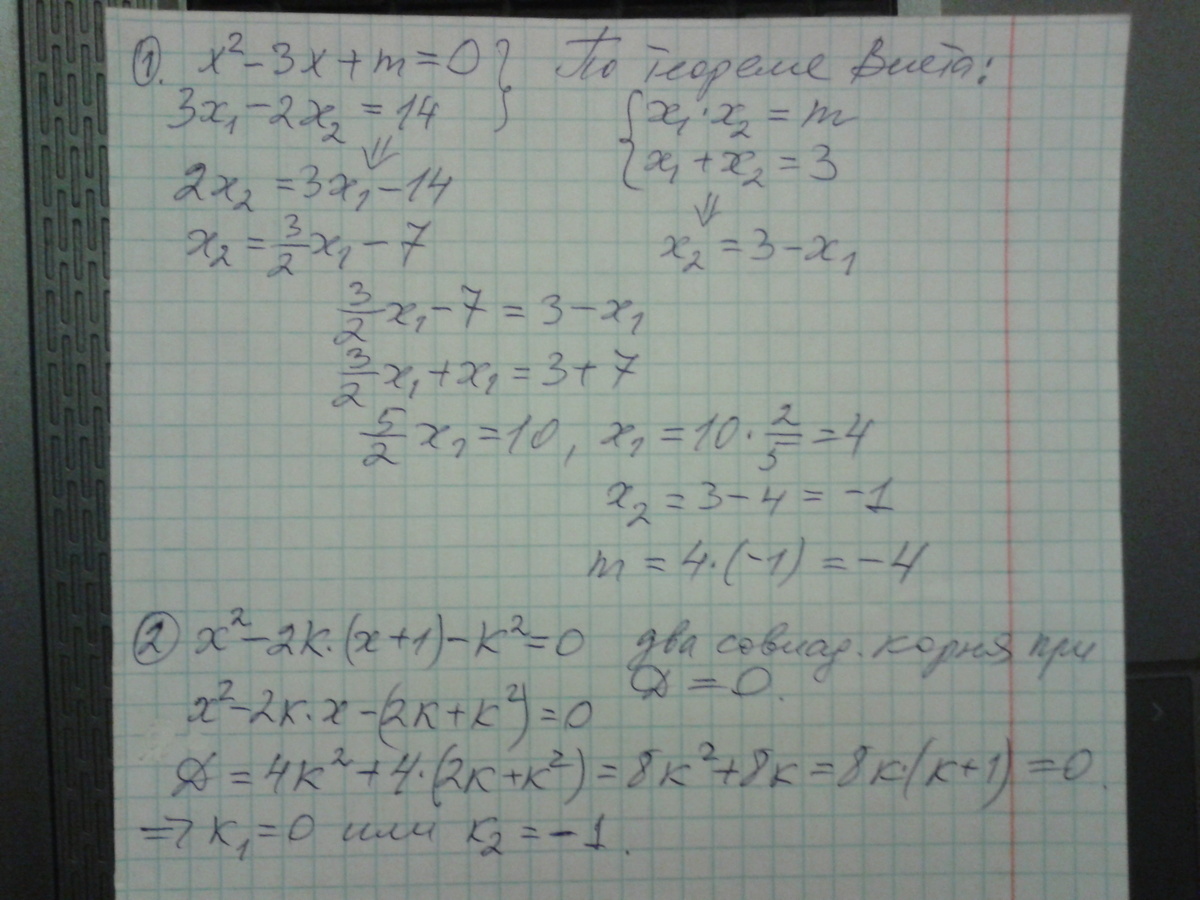 ① x² - 3x + m = 0 } По теореме Виета:
3x₁ - 2x₂ = 14 { x₁·x₂ = m
⇓ { x₁ + x₂ = 3
2x₂ = 3x₁ - 14 ⇓
x₂ = 3/2 x₁ - 7 x₂ = 3 - x₁
3/2 x₁ - 7 = 3 - x₁
3/2 x₁ + x₁ = 3 + 7
5/2 x₁ = 10, x₁ = 10 · 2/5 = 4
x₂ = 3 - 4 = -1
m = 4·(-1) = -4
② x² - 2k·(x+1) - k² = 0 два совпад. корня при
D = 0.
x² - 2k·x - (2k + k²) = 0
D = 4k² + 4·(2k + k²) = 8k² + 8k = 8k·(k+1) = 0.
⇒ k₁ = 0 или k₂ = -1.